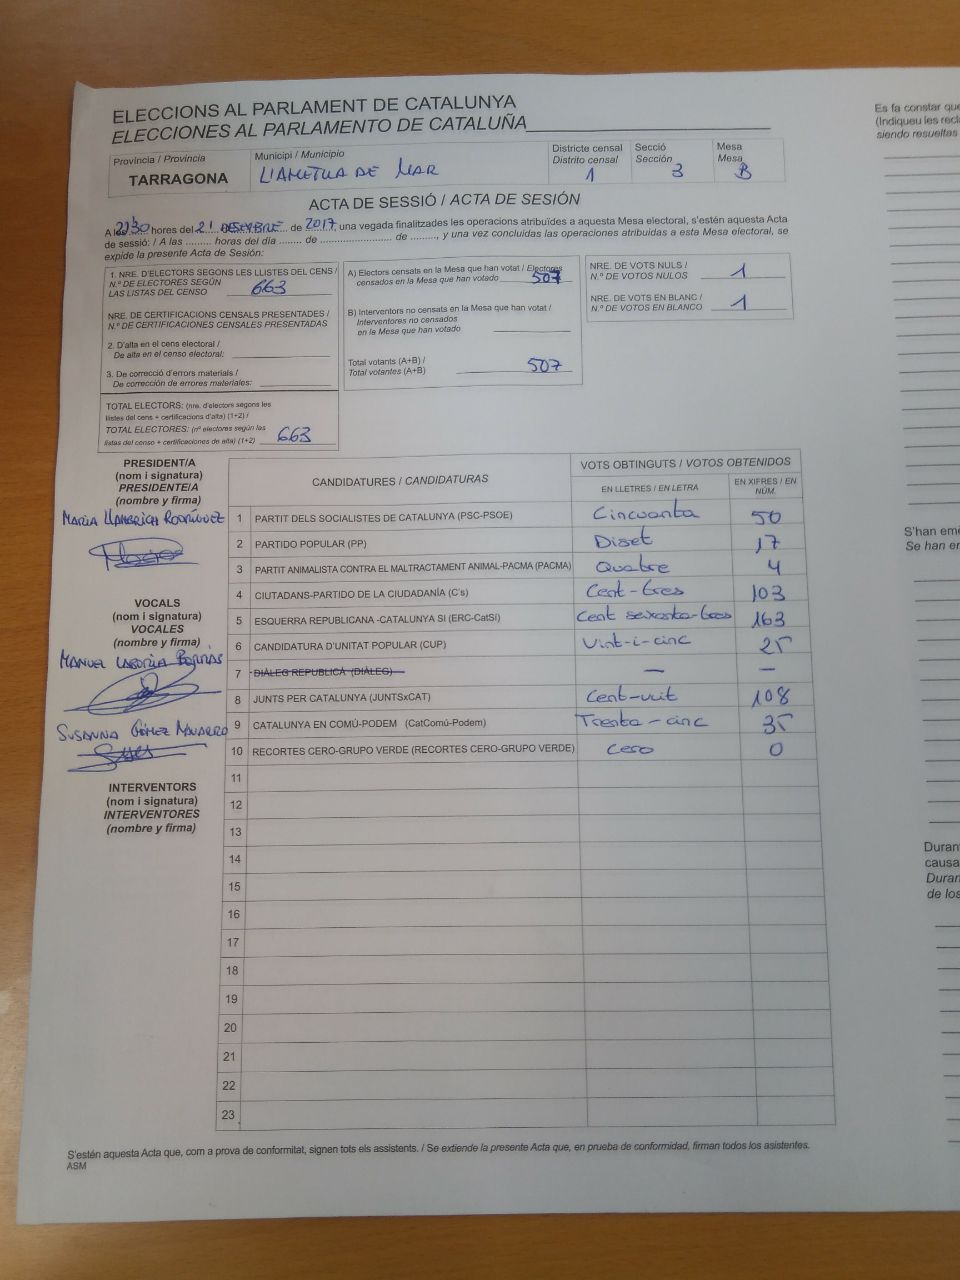 ELECCIONS AL PARLAMENT DE CATALUNYA
ELECCIONES AL PARLAMENTO DE CATALUÑA
Província / Provincia
TARRAGONA
Municipi / Municipio
L'AMETLLA DE MAR
Districte censal
Distrito censal
1
Secció
Sección
3
Mesa
Mesa
B
ACTA DE SESSIÓ / ACTA DE SESIÓN
A les 21'30 hores del 21 DESEMBRE de 2017, una vegada finalitzades les operacions atribuïdes a aquesta Mesa electoral, s'estén aquesta Acta
de sessió: / A las ......... horas del día ........ de ........................ de ........., y una vez concluidas las operaciones atribuidas a esta Mesa electoral, se
expide la presente Acta de Sesión:
1. NRE. D'ELECTORS SEGONS LES LLISTES DEL CENS /
N.º DE ELECTORES SEGÚN
LAS LISTAS DEL CENSO 663
NRE. DE CERTIFICACIONS CENSALS PRESENTADES /
N.º DE CERTIFICACIONES CENSALES PRESENTADAS
2. D'alta en el cens electoral /
De alta en el censo electoral:
3. De correcció d'errors materials /
De corrección de errores materiales:
TOTAL ELECTORS: (nre. d'electors segons les
llistes del cens + certificacions d'alta) (1+2) /
TOTAL ELECTORES: (nº electores según las
listas del censo + certificaciones de alta) (1+2) 663
A) Electors censats en la Mesa que han votat / Electores
censados en la Mesa que han votado 507
B) Interventors no censats en la Mesa que han votat /
Interventores no censados
en la Mesa que han votado
Total votants (A+B) /
Total votantes (A+B) 507
NRE. DE VOTS NULS /
N.º DE VOTOS NULOS 1
NRE. DE VOTS EN BLANC /
N.º DE VOTOS EN BLANCO 1
PRESIDENT/A
(nom i signatura)
PRESIDENTE/A
(nombre y firma)
MARIA LLAMBRICH RODRÍGUEZ
VOCALS
(nom i signatura)
VOCALES
(nombre y firma)
MANUEL BORRÀS
SUSANNA GÓMEZ NAVARRO
INTERVENTORS
(nom i signatura)
INTERVENTORES
(nombre y firma)
CANDIDATURES / CANDIDATURAS
VOTS OBTINGUTS / VOTOS OBTENIDOS
EN LLETRES / EN LETRA
EN XIFRES / EN NÚM.
1 PARTIT DELS SOCIALISTES DE CATALUNYA (PSC-PSOE) Cincuanta 50
2 PARTIDO POPULAR (PP) Diset 17
3 PARTIT ANIMALISTA CONTRA EL MALTRACTAMENT ANIMAL-PACMA (PACMA) Quatre 4
4 CIUTADANS-PARTIDO DE LA CIUDADANÍA (C's) Cent-tres 103
5 ESQUERRA REPUBLICANA -CATALUNYA SI (ERC-CatSI) Cent seixanta-tres 163
6 CANDIDATURA D'UNITAT POPULAR (CUP) Vint-i-cinc 25
7 DIÀLEG REPUBLICÀ (DIÀLEG) — —
8 JUNTS PER CATALUNYA (JUNTSxCAT) Cent-vuit 108
9 CATALUNYA EN COMÚ-PODEM (CatComú-Podem) Trenta-cinc 35
10 RECORTES CERO-GRUPO VERDE (RECORTES CERO-GRUPO VERDE) Cero 0
11
12
13
14
15
16
17
18
19
20
21
22
23
S'estén aquesta Acta que, com a prova de conformitat, signen tots els assistents. / Se extiende la presente Acta que, en prueba de conformidad, firman todos los asistentes.
ASM
Es fa constar que
(Indiqueu les recl
siendo resueltas
S'han em
Se han e
Durant
causa
Duran
de los